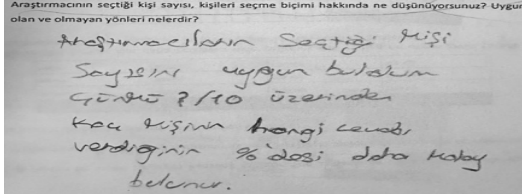 Araştırmacının seçtiği kişi sayısı, kişileri seçme biçimi hakkında ne düşünüyorsunuz? Uygun
olan ve olmayan yönleri nelerdir?
Araştırmacıların Seçtiği kişi
Sayısını uygun buldum
Çünkü ?/10 üzerinden
Kaç kişinin hangi cevabı
verdiğinin %'desi daha kolay
belenur.